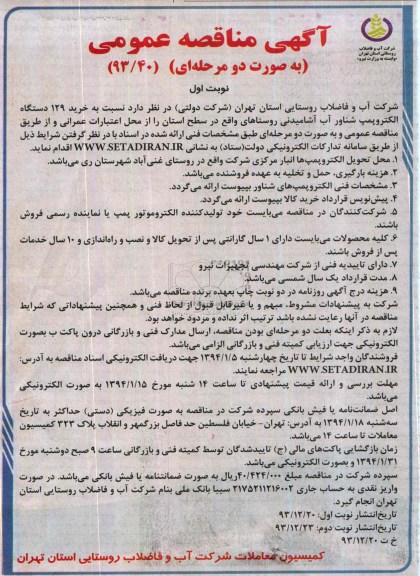 شرکت آب و فاضلاب
روستایی استان تهران
وابسته به وزارت نیرو
آگهی مناقصه عمومی
(به صورت دو مرحله‌ای) (۹۳/۴۰)
نوبت اول
شرکت آب و فاضلاب روستایی استان تهران (شرکت دولتی) در نظر دارد نسبت به خرید ۱۲۹ دستگاه
الکتروپمپ شناور آب آشامیدنی روستاهای واقع در سطح استان را از محل اعتبارات عمرانی و از طریق
مناقصه عمومی و به صورت دو مرحله‌ای طبق مشخصات فنی ارائه شده در اسناد با در نظر گرفتن شرایط ذیل
از طریق سامانه تدارکات الکترونیکی دولت(ستاد) به نشانی WWW.SETADIRAN.IR اقدام نماید.
۱. محل تحویل الکتروپمپ‌ها انبار مرکزی شرکت واقع در روستای غنی‌آباد شهرستان ری می‌باشد.
۲. هزینه بارگیری، حمل و تخلیه به عهده فروشنده می‌باشد.
۳. مشخصات فنی الکتروپمپ‌های شناور بپیوست ارائه می‌گردد.
۴. پیش‌نویس قرارداد خرید کالا بپیوست ارائه می‌گردد.
۵. شرکت‌کنندگان در مناقصه می‌بایست خود تولیدکننده الکتروموتور پمپ یا نماینده رسمی فروش
باشند.
۶. کلیه محصولات می‌بایست دارای ۱ سال گارانتی پس از تحویل کالا و نصب و راه‌اندازی و ۱۰ سال خدمات
پس از فروش باشند.
۷. دارای تاییدیه فنی از شرکت مهندسی تجهیزات نیرو
۸. مدت قرارداد یک سال شمسی می‌باشد.
۹. هزینه درج آگهی روزنامه در دو نوبت چاپ بعهده برنده مناقصه می‌باشد.
شرکت به پیشنهادات مشروط، مبهم و یا غیرقابل قبول از لحاظ فنی و همچنین پیشنهاداتی که شرایط
مناقصه در آنها رعایت نشده باشد ترتیب اثر نداده و مردود خواهد بود.
لازم به ذکر اینکه بعلت دو مرحله‌ای بودن مناقصه، ارسال مدارک فنی و بازرگانی درون پاکت ب بصورت
الکترونیکی جهت ارزیابی کمیته فنی و بازرگانی الزامی می‌باشد.
فروشندگان واجد شرایط تا تاریخ چهارشنبه ۱۳۹۴/۱/۵ جهت دریافت الکترونیکی اسناد مناقصه به آدرس:
WWW.SETADIRAN.IR مراجعه نمایند.
مهلت بررسی و ارائه قیمت پیشنهادی تا ساعت ۱۴ شنبه مورخ ۱۳۹۴/۱/۱۵ به صورت الکترونیکی
می‌باشد.
اصل ضمانت‌نامه یا فیش بانکی سپرده شرکت در مناقصه به صورت فیزیکی (دستی) حداکثر به تاریخ
سه‌شنبه ۱۳۹۴/۱/۱۸ به آدرس: تهران- خیابان فلسطین حد فاصل بزرگمهر و انقلاب پلاک ۳۲۳ کمیسیون
معاملات تا ساعت ۱۴ می‌باشد.
زمان بازگشایی پاکت‌های مالی (ج) تاییدشدگان توسط کمیته فنی و بازرگانی ساعت ۹ صبح دوشنبه مورخ
۱۳۹۴/۱/۳۱ و بصورت الکترونیکی می‌باشد.
سپرده شرکت در مناقصه مبلغ ۴۰/۴۲۴/۰۰۰ریال به صورت ضمانتنامه یا فیش بانکی می‌باشد. در صورت
واریز نقدی به حساب جاری ۲۱۷۵۲۱۱۲۱۶۰۰۲ سیبا بانک ملی بنام شرکت آب و فاضلاب روستایی استان
تهران انجام گیرد.
تاریخ‌انتشار نوبت اول: ۹۳/۱۲/۲۰
تاریخ‌انتشار نوبت دوم: ۹۳/۱۲/۲۳
خ ت ۹۳/۱۲/۲۰
کمیسیون معاملات شرکت آب و فاضلاب روستایی استان تهران